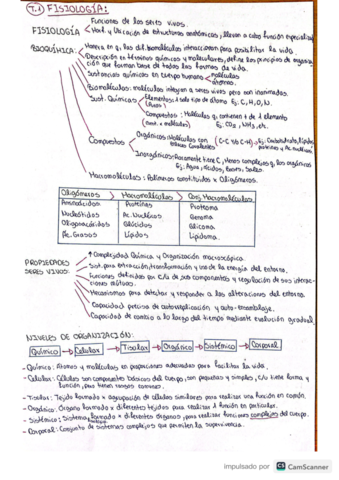 T.1 FISIOLOGÍA:
FISIOLOGÍA
Funciones de los seres vivos.
BIOQUÍMICA:
Descripción en términos químicos y moleculares, define los principios de organiza-
ción que forman base de todas las formas de vida.
Sustancias químicas en cuerpo humano
moléculas
átomos.
Biomoléculas: moléculas integran a seres vivos pero son inanimadas.
Sust. Químicas
Elementos: 1 solo tipo de átomo Ej: C, H, O, N.
Compuestos: Moléculas q contienen + de 1 elemento
Ej: CO2, NH3, etc.
Compuestos
Orgánicos: Moléculas con
enlaces Covalentes
(C-C ó C-H)
Inorgánicos: Raramente tiene C, Menos complejos q los orgánicos
Ej: Agua, Ácidos, Bases, Sales.
Macromoléculas: Polímeros constituidos x Oligómeros.
Oligómeros Macromoléculas Conj. Macromoléculas
Aminoácidos Proteínas Proteoma
Nucleótidos Ac. Nucleicos Genoma
Oligosacáridos Glúcidos Glicoma
Ac. Grasos Lípidos Lipidoma
PROPIEDADES
SERES VIVOS:
↑ Complejidad Química y Organización macroscópica.
Sist. para extracción, transformación y uso de la energía del entorno.
Funciones definidas por c/u de sus componentes y regulación de sus interac-
ciones mútuas.
Mecanismos para detectar y responder a las alteraciones del entorno.
Capacidad precisa de autoreplicación y auto-ensamblaje.
Capacidad de cambio a lo largo del tiempo mediante evolución gradual.
NIVELES DE ORGANIZACIÓN:
Químico → Celular → Tisular → Orgánico → Sistémico → Corporal
- Químico: Átomos y moléculas en proporciones adecuadas para facilitar la vida.
- Celular: Células son componentes básicos del cuerpo, son pequeñas y simples, c/u tiene forma y
función, pero tienen rasgos comunes.
- Tisular: Tejido formado x agrupación de células similares para realizar una función en común.
- Orgánico: Órgano formado x diferentes tejidos para realizar 1 función en particular.
- Sistémico: Sistema formado x diferentes órganos, para realizar funciones complejas del cuerpo.
- Corporal: Conjunto de sistemas complejos que permiten la supervivencia.
impulsado por CS CamScanner